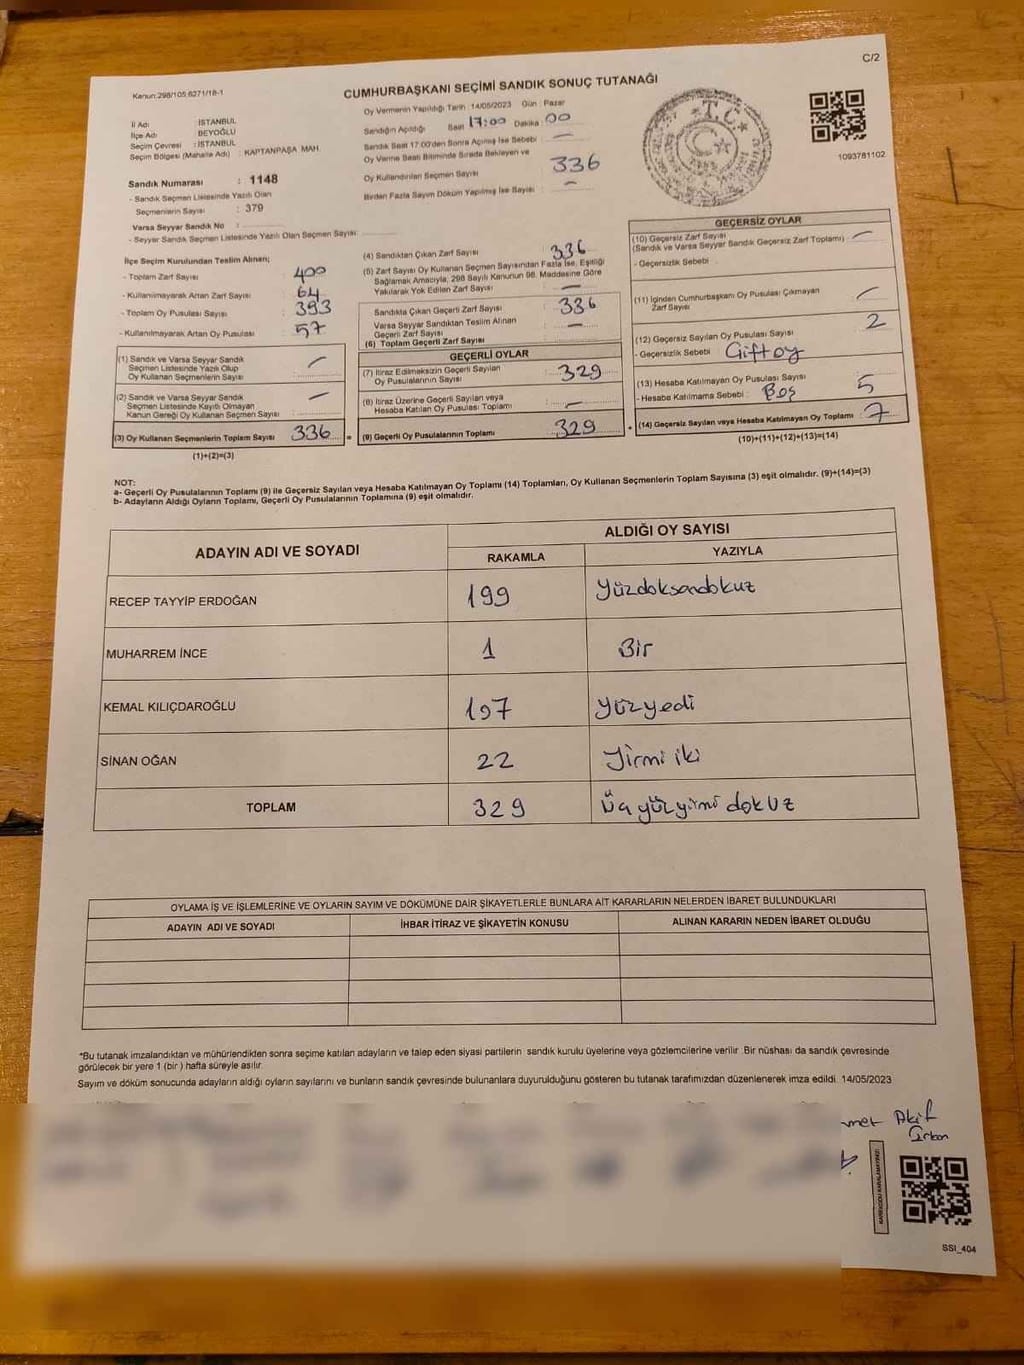 C/2
Kanun:298/105,6271/18-1
CUMHURBAŞKANI SEÇİMİ SANDIK SONUÇ TUTANAĞI
İl Adı : İSTANBUL
İlçe Adı : BEYOĞLU
Seçim Çevresi : İSTANBUL
Seçim Bölgesi (Mahalle Adı) : KAPTANPAŞA MAH.
Oy Vermenin Yapıldığı Tarih : 14/05/2023 Gün : Pazar
Sandığın Açıldığı Saat 17:00 Dakika : 00
Sandık Saat 17.00'den Sonra Açılmış İse Sebebi : —
Oy Verme Saati Bitiminde Sırada Bekleyen ve
Oy Kullandırılan Seçmen Sayısı : 336
Birden Fazla Sayım Döküm Yapılmış İse Sayısı : —
T.C.
1093781102
Sandık Numarası : 1148
- Sandık Seçmen Listesinde Yazılı Olan
Seçmenlerin Sayısı : 379
Varsa Seyyar Sandık No :
- Seyyar Sandık Seçmen Listesinde Yazılı Olan Seçmen Sayısı:
İlçe Seçim Kurulundan Teslim Alınan;
- Toplam Zarf Sayısı : 400
- Kullanılmayarak Artan Zarf Sayısı : 64
- Toplam Oy Pusulası Sayısı : 393
- Kullanılmayarak Artan Oy Pusulası : 57
(1) Sandık ve Varsa Seyyar Sandık
Seçmen Listesinde Yazılı Olup
Oy Kullanan Seçmenlerin Sayısı : —
(2) Sandık ve Varsa Seyyar Sandık
Seçmen Listesinde Kayıtlı Olmayan
Kanun Gereği Oy Kullanan Seçmen Sayısı : —
(3) Oy Kullanan Seçmenlerin Toplam Sayısı 336 =
(1)+(2)=(3)
(4) Sandıktan Çıkan Zarf Sayısı : 336
(5) Zarf Sayısı Oy Kullanan Seçmen Sayısından Fazla İse, Eşitliği
Sağlamak Amacıyla, 298 Sayılı Kanunun 98. Maddesine Göre
Yakılarak Yok Edilen Zarf Sayısı : —
Sandıkta Çıkan Geçerli Zarf Sayısı : 336
Varsa Seyyar Sandıktan Teslim Alınan
Geçerli Zarf Sayısı : —
(6) Toplam Geçerli Zarf Sayısı
GEÇERLİ OYLAR
(7) İtiraz Edilmeksizin Geçerli Sayılan
Oy Pusulalarının Sayısı : 329
(8) İtiraz Üzerine Geçerli Sayılan veya
Hesaba Katılan Oy Pusulası Toplamı : —
(9) Geçerli Oy Pusulalarının Toplamı 329 +
GEÇERSİZ OYLAR
(10) Geçersiz Zarf Sayısı
(Sandık ve Varsa Seyyar Sandık Geçersiz Zarf Toplamı) : —
- Geçersizlik Sebebi :
(11) İçinden Cumhurbaşkanı Oy Pusulası Çıkmayan
Zarf Sayısı : —
(12) Geçersiz Sayılan Oy Pusulası Sayısı : 2
- Geçersizlik Sebebi : Çiftoy
(13) Hesaba Katılmayan Oy Pusulası Sayısı : 5
- Hesaba Katılmama Sebebi : Boş
(14) Geçersiz Sayılan veya Hesaba Katılmayan Oy Toplamı : 7
(10)+(11)+(12)+(13)=(14)
NOT:
a- Geçerli Oy Pusulalarının Toplamı (9) ile Geçersiz Sayılan veya Hesaba Katılmayan Oy Toplamı (14) Toplamları, Oy Kullanan Seçmenlerin Toplam Sayısına (3) eşit olmalıdır. (9)+(14)=(3)
b- Adayların Aldığı Oyların Toplamı, Geçerli Oy Pusulalarının Toplamına (9) eşit olmalıdır.
ADAYIN ADI VE SOYADI ALDIĞI OY SAYISI
RAKAMLA YAZIYLA
RECEP TAYYİP ERDOĞAN 199 Yüzdoksandokuz
MUHARREM İNCE 1 Bir
KEMAL KILIÇDAROĞLU 107 Yüzyedi
SİNAN OĞAN 22 Yirmi iki
TOPLAM 329 Üçyüzyirmi dokuz
OYLAMA İŞ VE İŞLEMLERİNE VE OYLARIN SAYIM VE DÖKÜMÜNE DAİR ŞİKAYETLERLE BUNLARA AİT KARARLARIN NELERDEN İBARET BULUNDUKLARI
ADAYIN ADI VE SOYADI İHBAR İTİRAZ VE ŞİKAYETİN KONUSU ALINAN KARARIN NEDEN İBARET OLDUĞU
*Bu tutanak imzalandıktan ve mühürlendikten sonra seçime katılan adayların ve talep eden siyasi partilerin sandık kurulu üyelerine veya gözlemcilerine verilir. Bir nüshası da sandık çevresinde
görülecek bir yere 1 (bir) hafta süreyle asılır.
Sayım ve döküm sonucunda adayların aldığı oyların sayılarını ve bunların sandık çevresinde bulunanlara duyurulduğunu gösteren bu tutanak tarafımızdan düzenlenerek imza edildi. 14/05/2023
met Akif
SSI_404